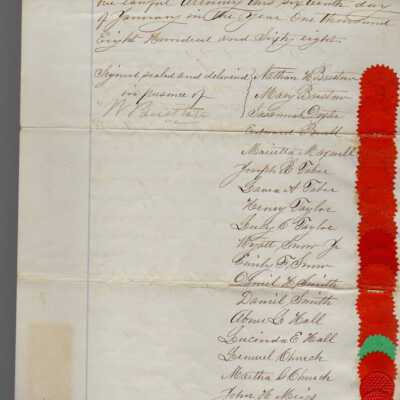 our lawful Attorney this sixteenth day
of January in the year One thousand
Eight Hundred and Sixty eight.
Signed sealed and delivered
in presence of
Nathan H. Bristow
Mary Bristow
Savannah
Edward
Marietta Maxwell
Joseph R Taber
Laura A Taber
Henry Taylor
Lucy C Taylor
Wyatt Snow Jr
Snow
Daniel H. Smith
Daniel Smith
Abner L Hall
Lucinda E Hall
Lemuel Church
Martha L Church
John H.